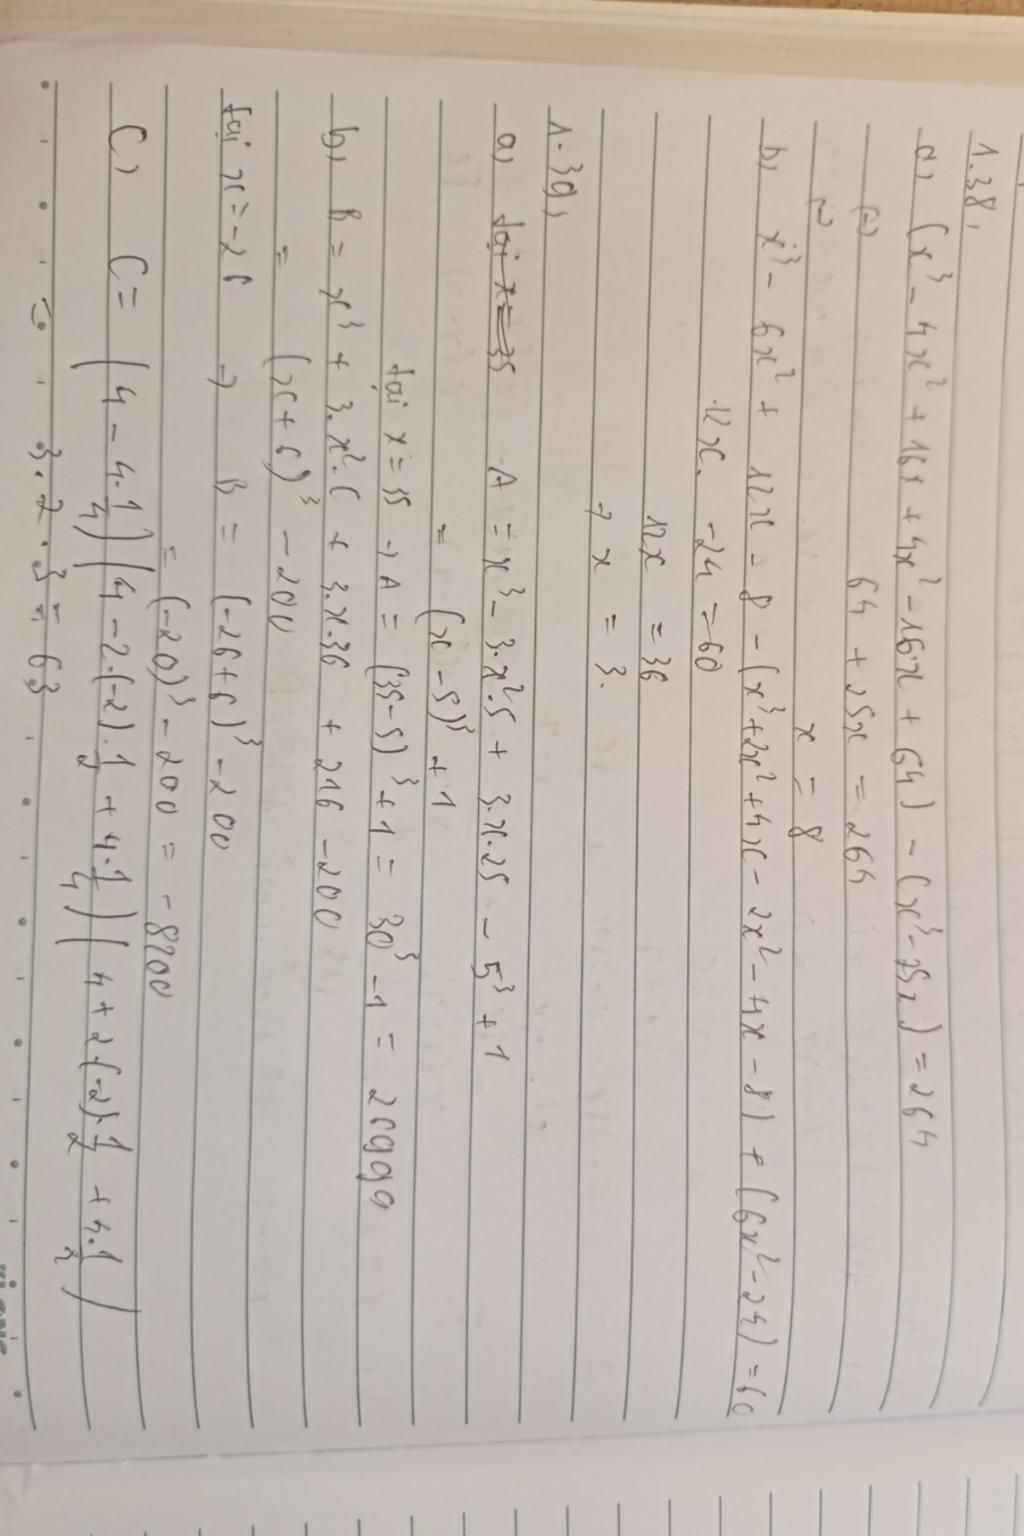 1.38,
a, (x³ - 4x² + 16x + 4x² - 16x + 64) - (x³ - 25x) = 264
(=) 64 + 25x = 264
(=) x = 8
b, x³ - 6x² + 12x - 8 - (x³ + 2x² + 4x - 2x² - 4x - 8) + (6x² - 24) = 60
12x. - 24 = 60
12x = 36
→ x = 3.
1.39,
a, tại x = 35 A = x³ - 3.x².5 + 3.x.25 - 5³ + 1
= (x - 5)³ + 1
tại x = 35 → A = (35 - 5)³ + 1 = 30³ - 1 = 26999
b, B = x³ + 3.x².6 + 3.x.36 + 216 - 200
= (x + 6)³ - 200
tại x = -26 → B = (-26 + 6)³ - 200
= (-20)³ - 200 = -8200
C, C = (4 - 4.1/4)(4 - 2.(-2).1/2 + 4.1/4)(4 + 2.(-2).1/2 + 4.1/4)
= 3.7.3 = 63